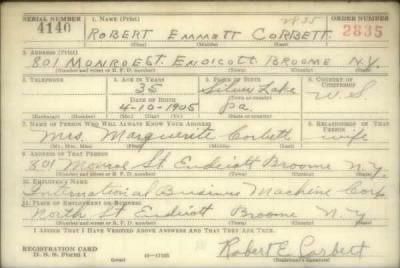 SERIAL NUMBER 1. NAME (Print) 2835 ORDER NUMBER
4140 ROBERT EMMOTT CORBETT 2835
(First) (Middle) (Last)
2. ADDRESS (Print)
801 MONROE ST. ENDICOTT BROOME N.Y.
(Number and street or R. F. D. number) (Town) (County) (State)
3. TELEPHONE 4. AGE IN YEARS 5. PLACE OF BIRTH 6. COUNTRY OF CITIZENSHIP
35 Silver Lake
DATE OF BIRTH (Town or county)
4-10-1905 Pa. U.S.
(Exchange) (Number) (Mo.) (Day) (Yr.) (State or country)
7. NAME OF PERSON WHO WILL ALWAYS KNOW YOUR ADDRESS 8. RELATIONSHIP OF THAT PERSON
Mrs. Marguerite Corbett wife
(Mr., Mrs., Miss) (First) (Middle) (Last)
9. ADDRESS OF THAT PERSON
801 Monroe St. Endicott Broome N.Y.
(Number and street or R. F. D. number) (Town) (County) (State)
10. EMPLOYER'S NAME
International Business Machine Corp
11. PLACE OF EMPLOYMENT OR BUSINESS
North St. Endicott Broome N.Y.
(Number and street or R. F. D. number) (Town) (County) (State)
I AFFIRM THAT I HAVE VERIFIED ABOVE ANSWERS AND THAT THEY ARE TRUE.
REGISTRATION CARD
D. S. S. Form 1 (over) 16-17105 Robert E. Corbett
(Registrant's signature)